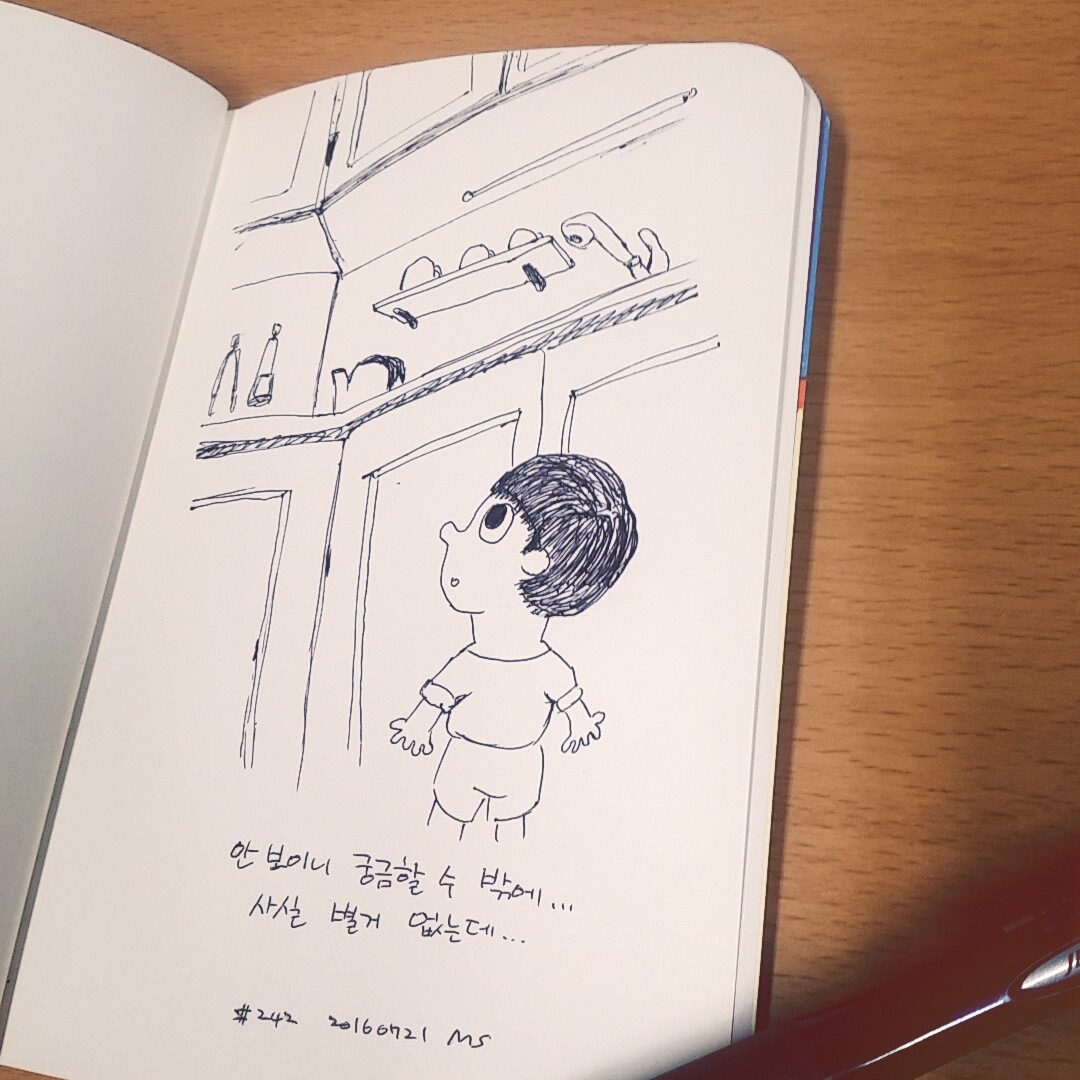 안 보이니 궁금할 수 밖에...
사실 별거 없는데...
#242 20160721 MS